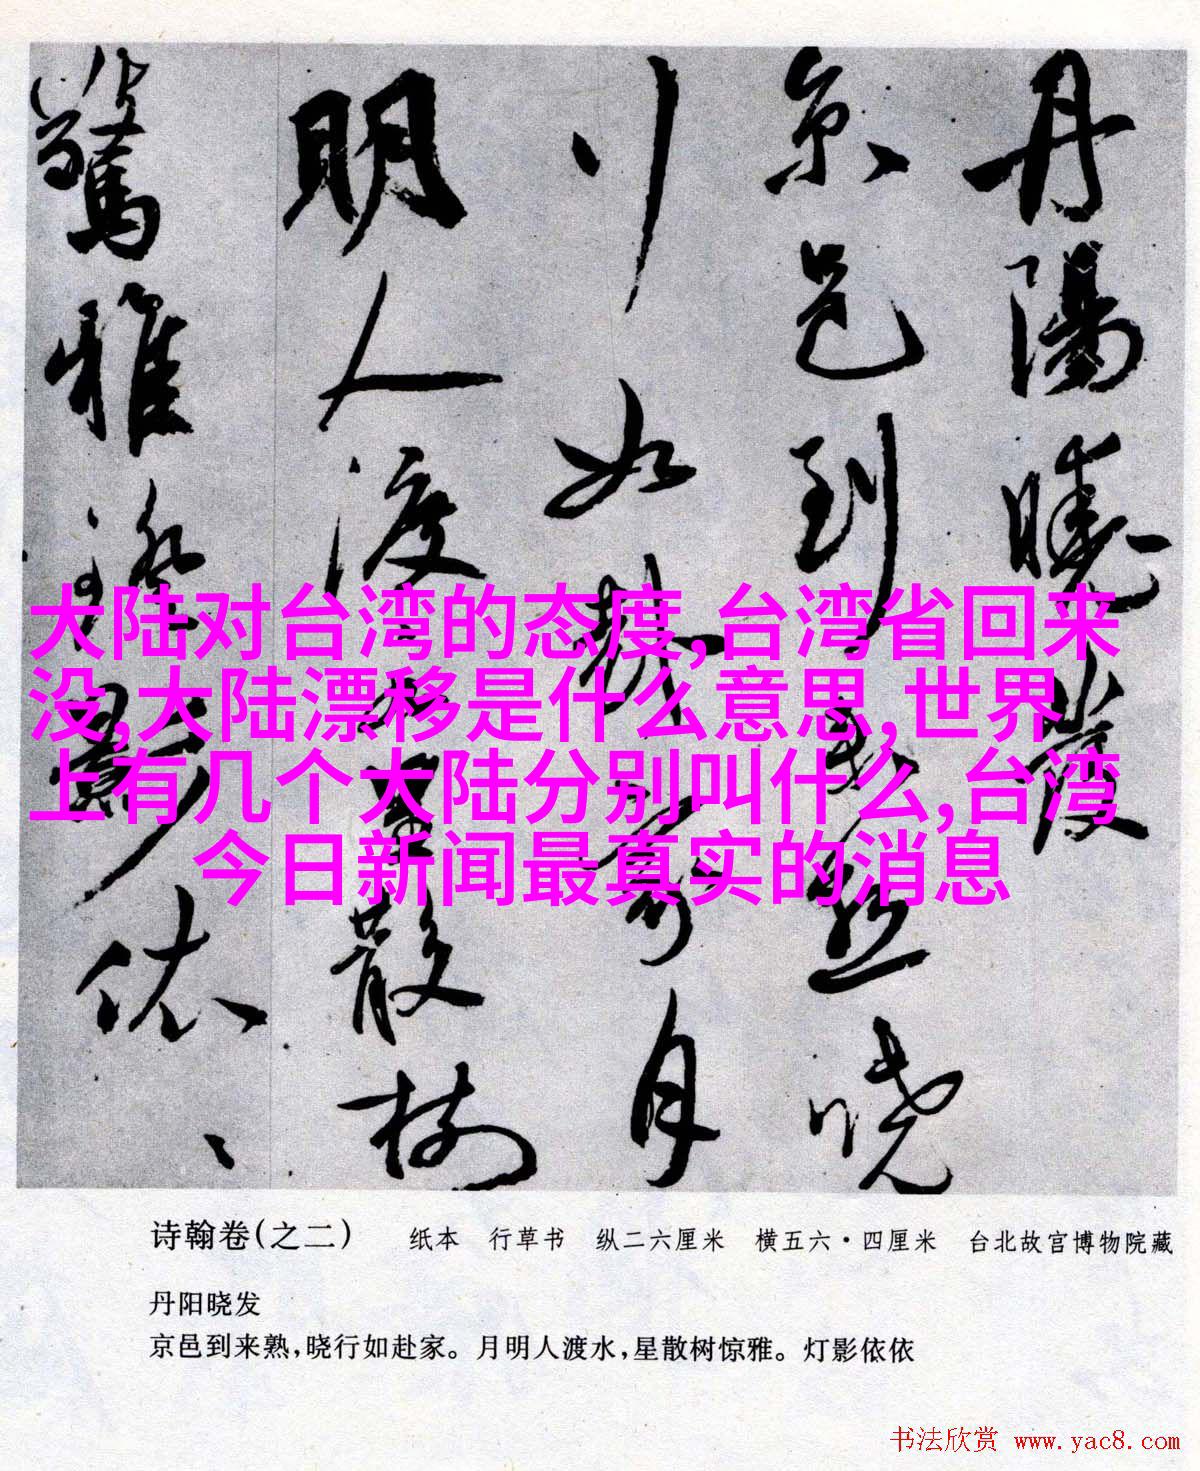 丹陽曉發
京邑到來熟曉
行如赴家月
明人渡水星散樹
驚雅燈影依、
大陆对台湾的态度,台湾省回来
没,大陆漂移是什么意思,世界
上有几个大陆分别叫什么,台湾
今日新闻最真实的消息
诗翰卷(之二) 纸本 行草书 纵二六厘米 横五六·四厘米 台北故宫博物院藏
丹阳晓发
京邑到来熟,晓行如赴家。月明人渡水,星散树惊雅。灯影依依
书法欣赏 www.yac8.com